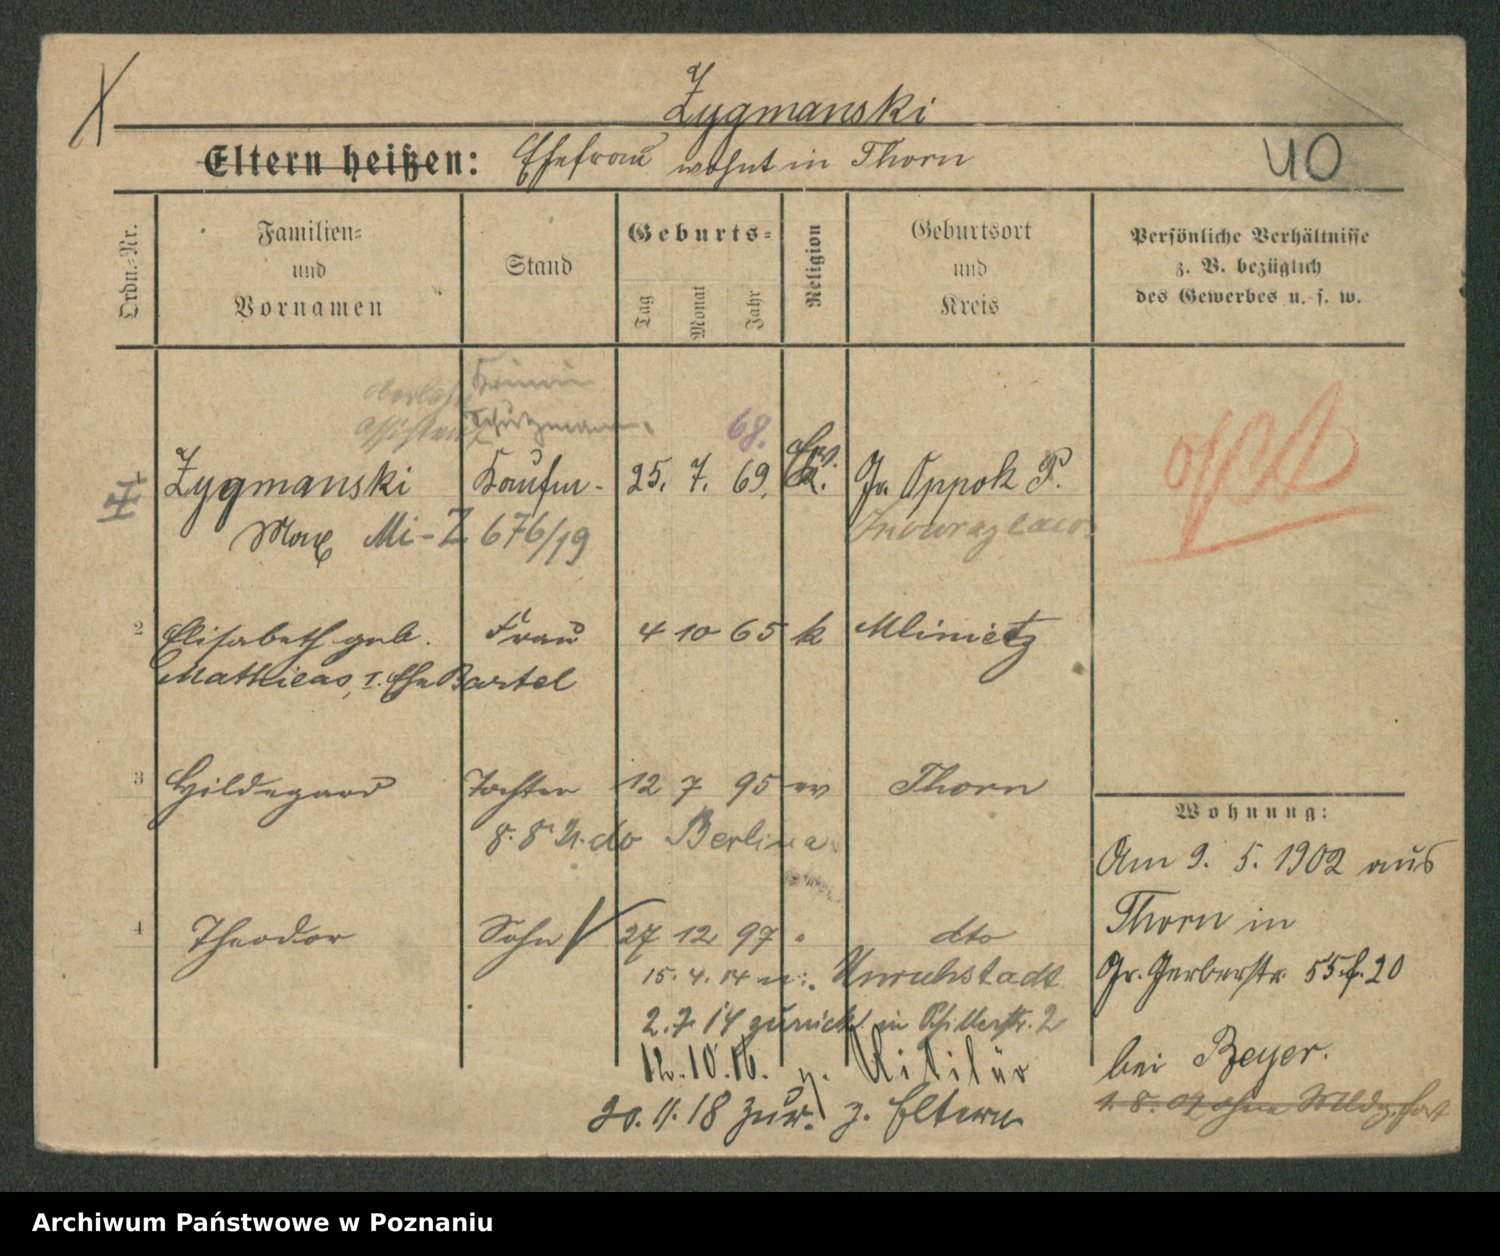 Zygmanski
Eltern heißen: Ehefrau wohnt in Thorn
40
Ordn.-Nr.
Familien-
und
Vornamen
Stand
Geburts-
Tag
Monat
Jahr
Religion
Geburtsort
und
Kreis
Persönliche Verhältnisse
z. B. bezüglich
des Gewerbes u. s. w.
Schutzmann.
68.
Zygmanski Kaufm- 25. 7. 69. Gr. Oppok P.
Max Mi-Z 676/19 Inowrazlaw
2 Elisabeth geb. Frau 4 10 65 k Mlinietz
Mathieas, I. Ehe Bartel
3 Hildegard Tochter 12 7 95 ev Thorn
Berlin
4 Theodor Sohn 27 12 97 " dto
15. 4. 14 n. Unruhstadt
2. 7. 14 zurück in Schillerstr. 2
12. 10. 16. z. Militär
20. 11. 18 zur. z. Eltern
Wohnung:
Am 9. 5. 1902 aus
Thorn in
Gr. Gerberstr. 55 f. 20
bei Beyer.
Archiwum Państwowe w Poznaniu